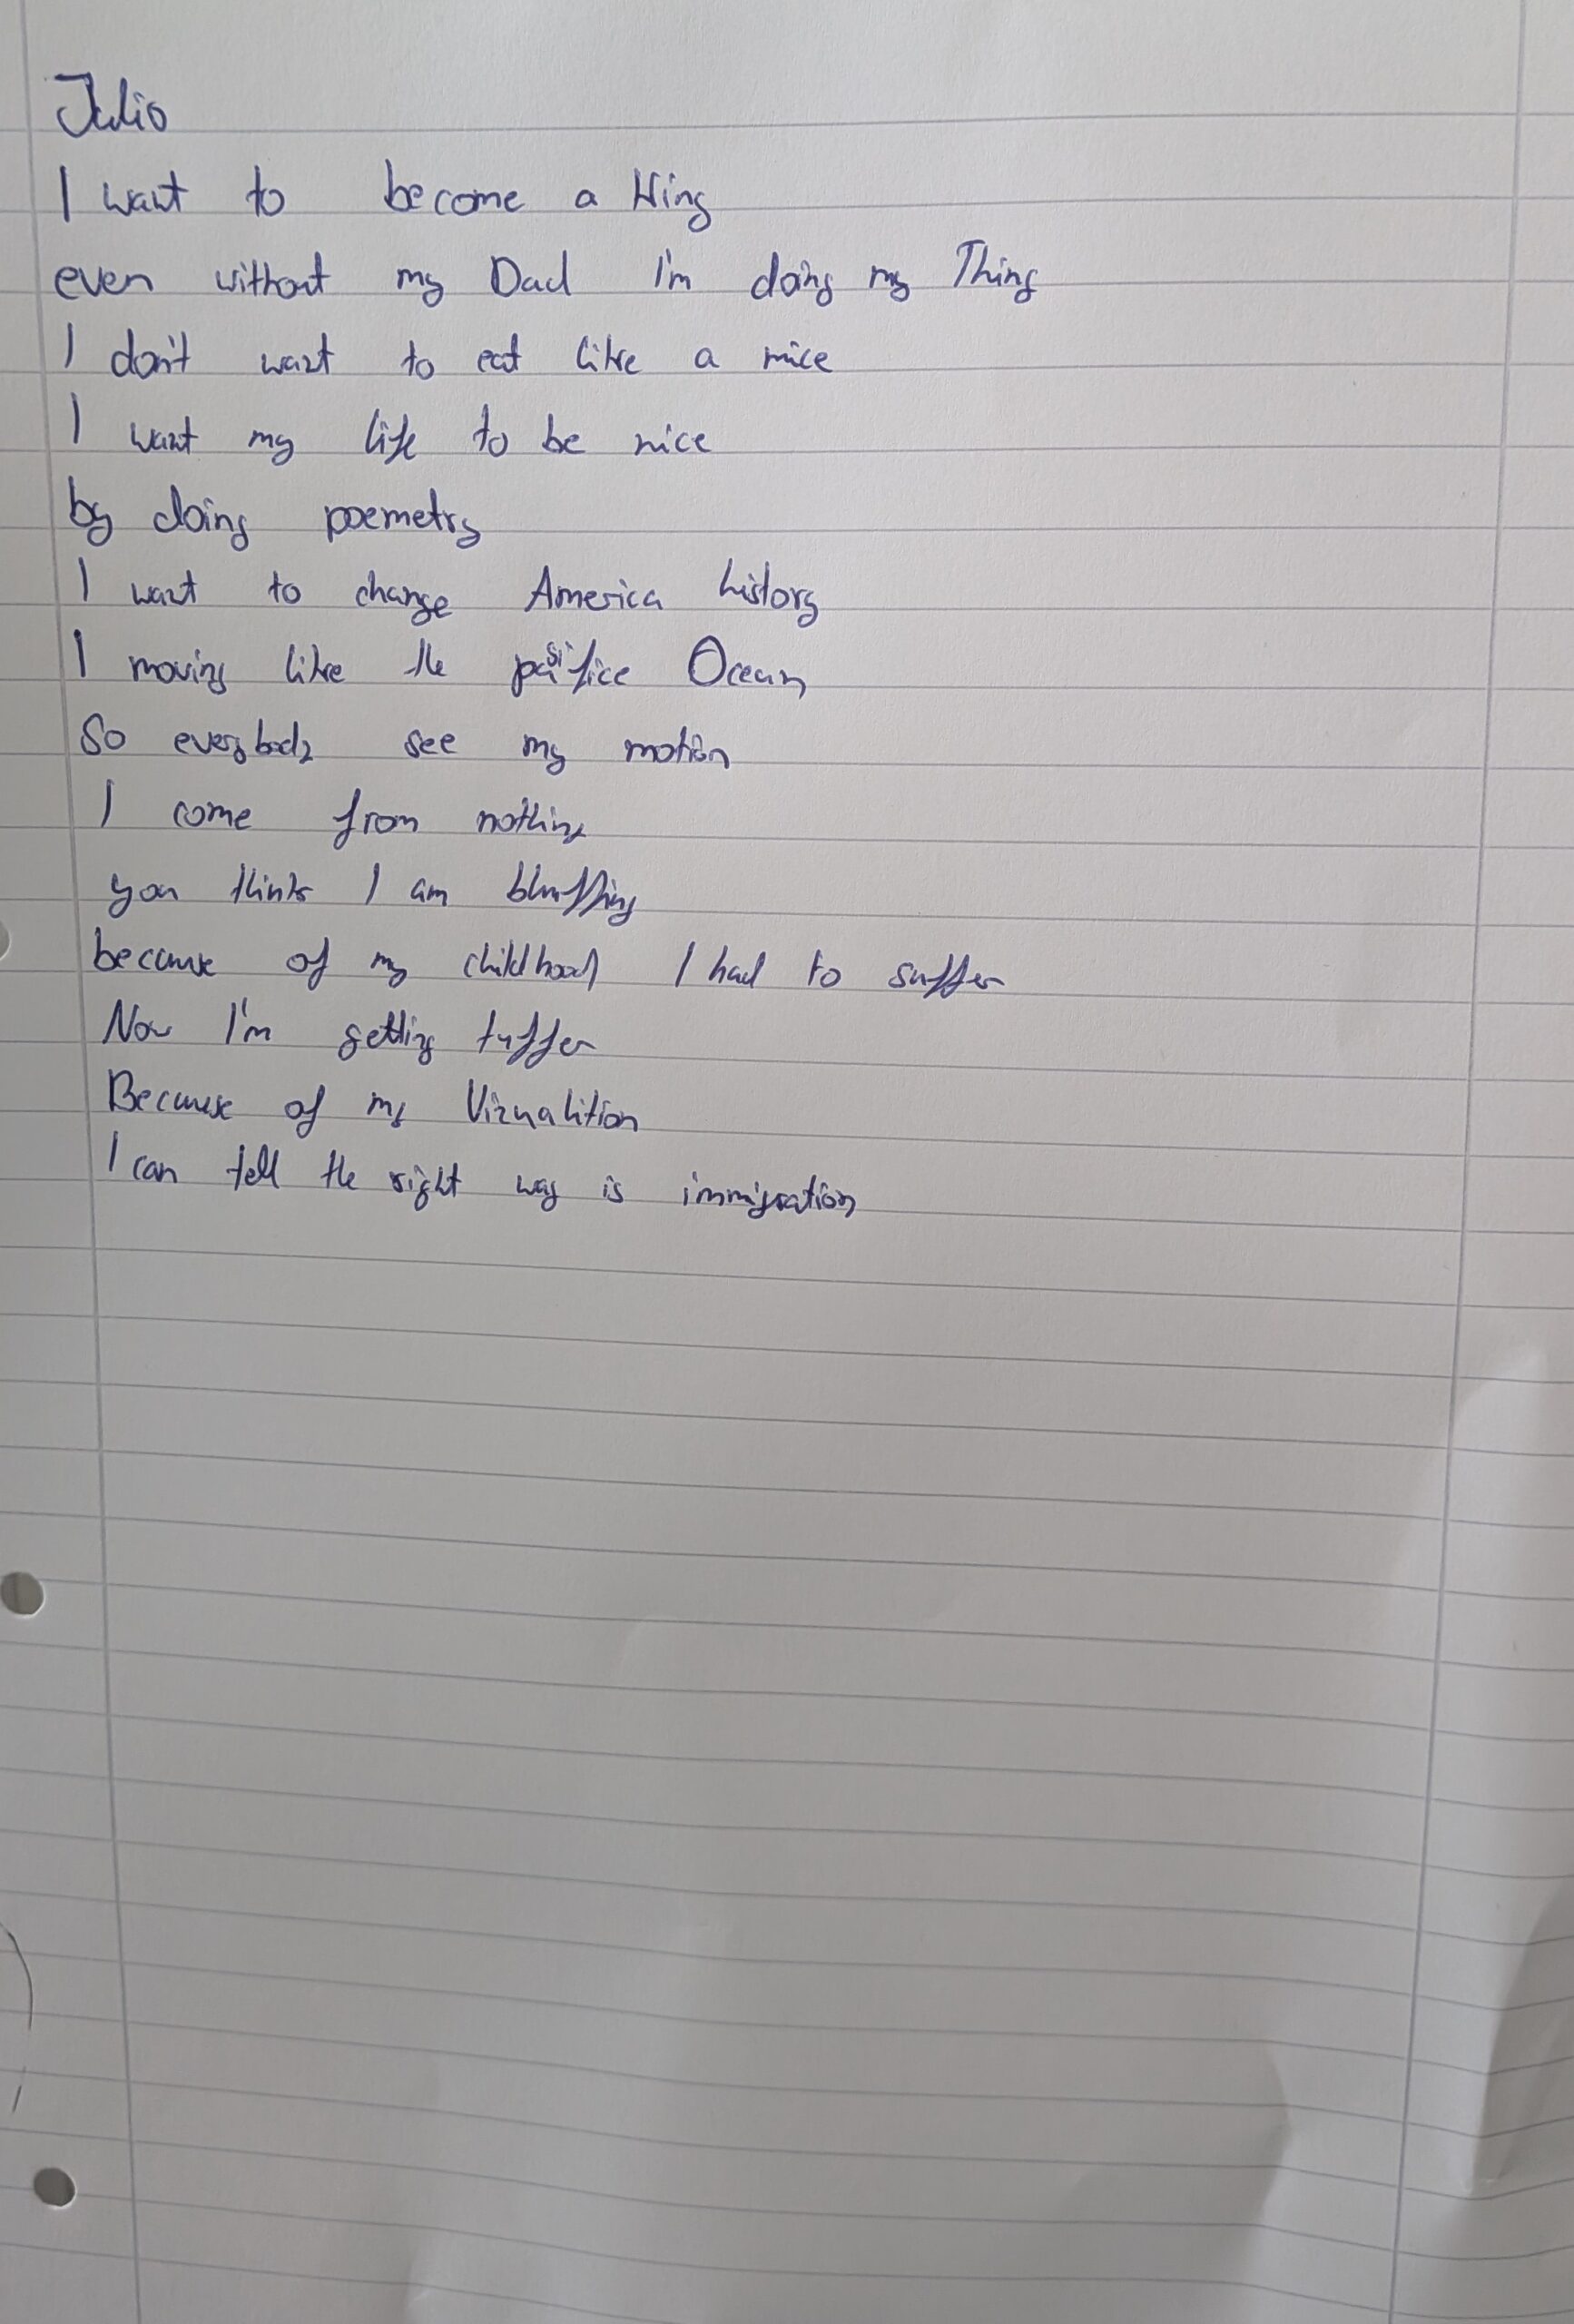 Julio
I want to become a King
even without my Dad I'm doing my Thing
I don't want to eat like a mice
I want my life to be nice
by doing poemetry
I want to change America history
I moving like the pasifice Ocean
So everybody see my motion
I come from nothing
you think I am bluffing
because of my childhood I had to suffer
Now I'm getting tuffer
Because of my Vizualition
I can tell the right way is immigration